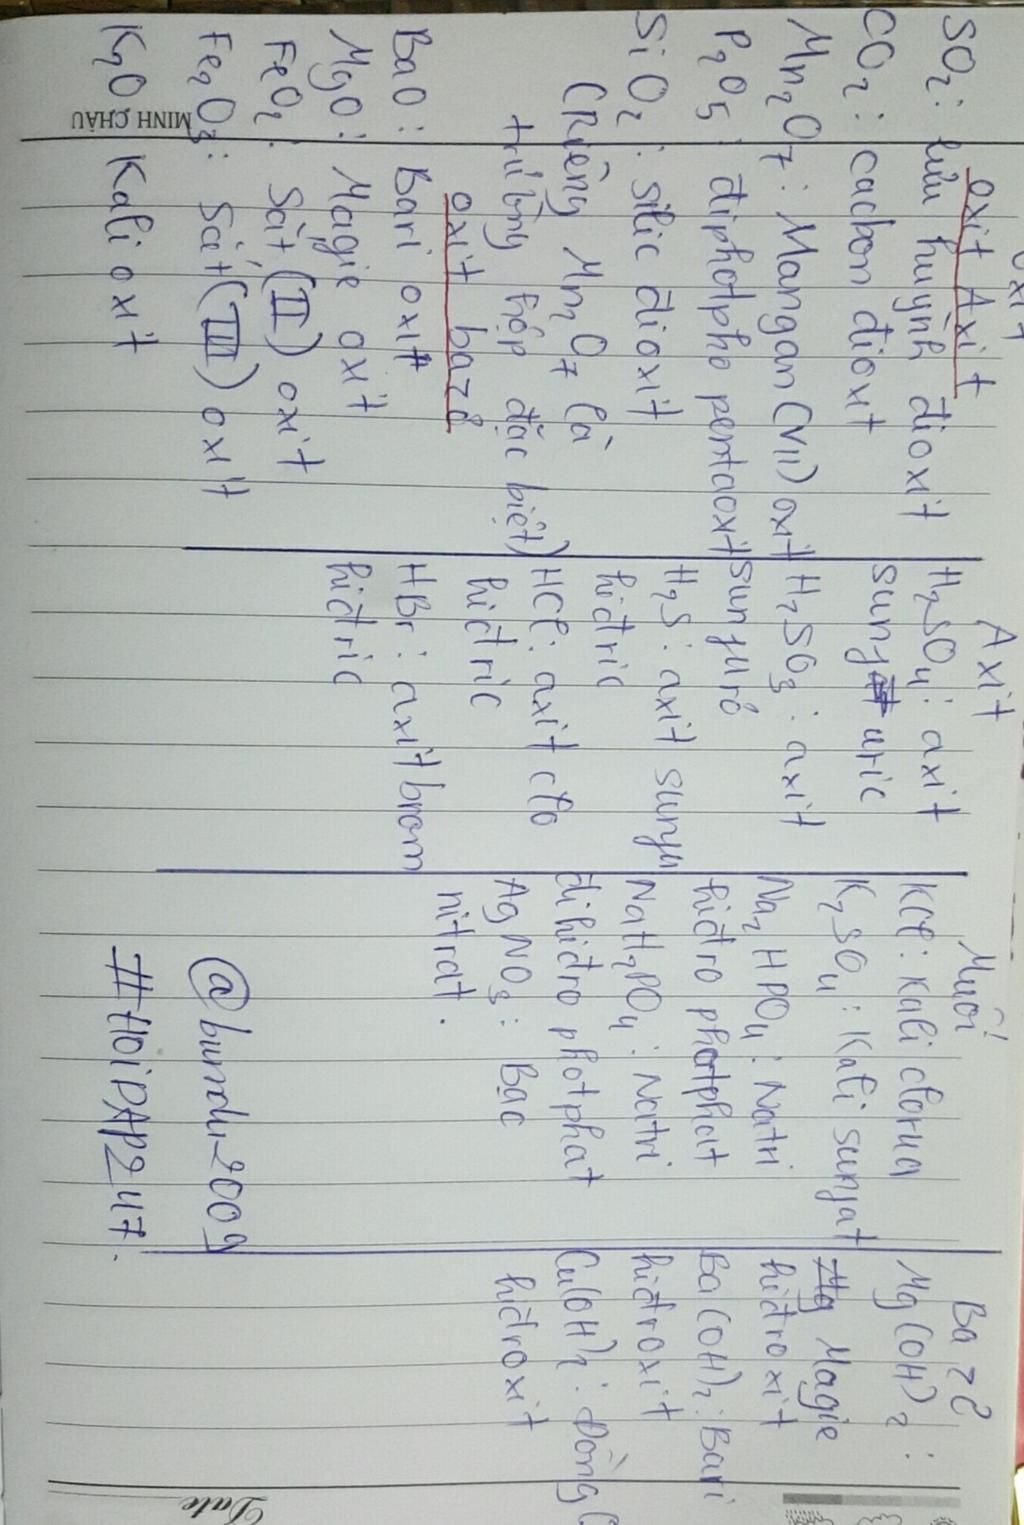 oxit
oxit Axit
SO2: lưu huỳnh đioxit
CO2: cacbon đioxt
Mn2O7: Mangan (VII) oxit
P2O5: điphotpho pentaoxit
SiO2: silic đioxit
(Riêng Mn2O7 là
trường hợp đặc biệt)
oxit bazơ
BaO: Bari oxit
MgO: Magie oxit
FeO2: Sắt (II) oxit
Fe2O3: Sắt (III) oxit
K2O: Kali oxit
MINH CHÂU
Axit
H2SO4: axit
sunfuric
H2SO3: axit
sunfurơ
H2S: axit sunfu
hiđric
HCl: axit clo
hiđric
HBr: axit brom
hiđric
Muối
KCl: Kali clorua
K2SO4: Kali sunfat
Na2HPO4: Natri
hiđro photphat
NaH2PO4: Natri
đihiđro photphat
AgNO3: Bạc
nitrat.
@bundu-2009
#HOIĐAP247.
Bazơ
Mg(OH)2:
Magie
hiđroxit
Ba(OH)2: Bari
hiđroxit
Cu(OH)2: Đồng
hiđroxit
Date